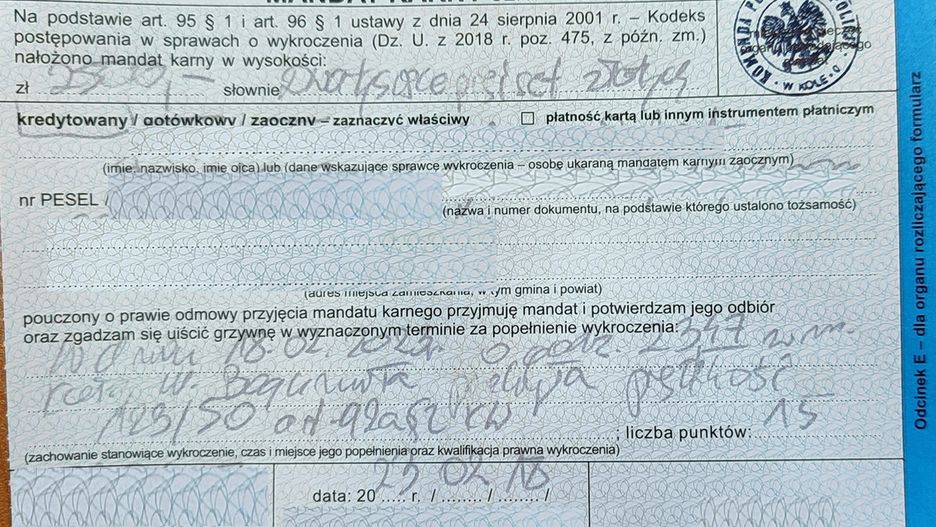 Na podstawie art. 95 § 1 i art. 96 § 1 ustawy z dnia 24 sierpnia 2001 r. – Kodeks
postępowania w sprawach o wykroczenia (Dz. U. z 2018 r. poz. 475, z późn. zm.)
nałożono mandat karny w wysokości:
zł 2500,- słownie dwa tysiące pięćset złotych
kredytowany / gotówkowy / zaoczny – zaznaczyć właściwy
płatność kartą lub innym instrumentem płatniczym
(imię, nazwisko, imię ojca) lub (dane wskazujące sprawcę wykroczenia – osobę ukaraną mandatem karnym zaocznym)
nr PESEL
(nazwa i numer dokumentu, na podstawie którego ustalono tożsamość)
(adres miejsca zamieszkania, w tym gmina i powiat)
pouczony o prawie odmowy przyjęcia mandatu karnego przyjmuję mandat i potwierdzam jego odbiór
oraz zgadzam się uiścić grzywnę w wyznaczonym terminie za popełnienie wykroczenia:
W dniu 18.02.2023r. o godz. 2347 w m.
prędkość
123/50 art. 92a§2 kw ; liczba punktów: 15
(zachowanie stanowiące wykroczenie, czas i miejsce jego popełnienia oraz kwalifikacja prawna wykroczenia)
data: 20 23 r. / 02 / 18 /
KOMENDA POLICJI W KOLE
Odcinek E – dla organu rozliczającego formularz